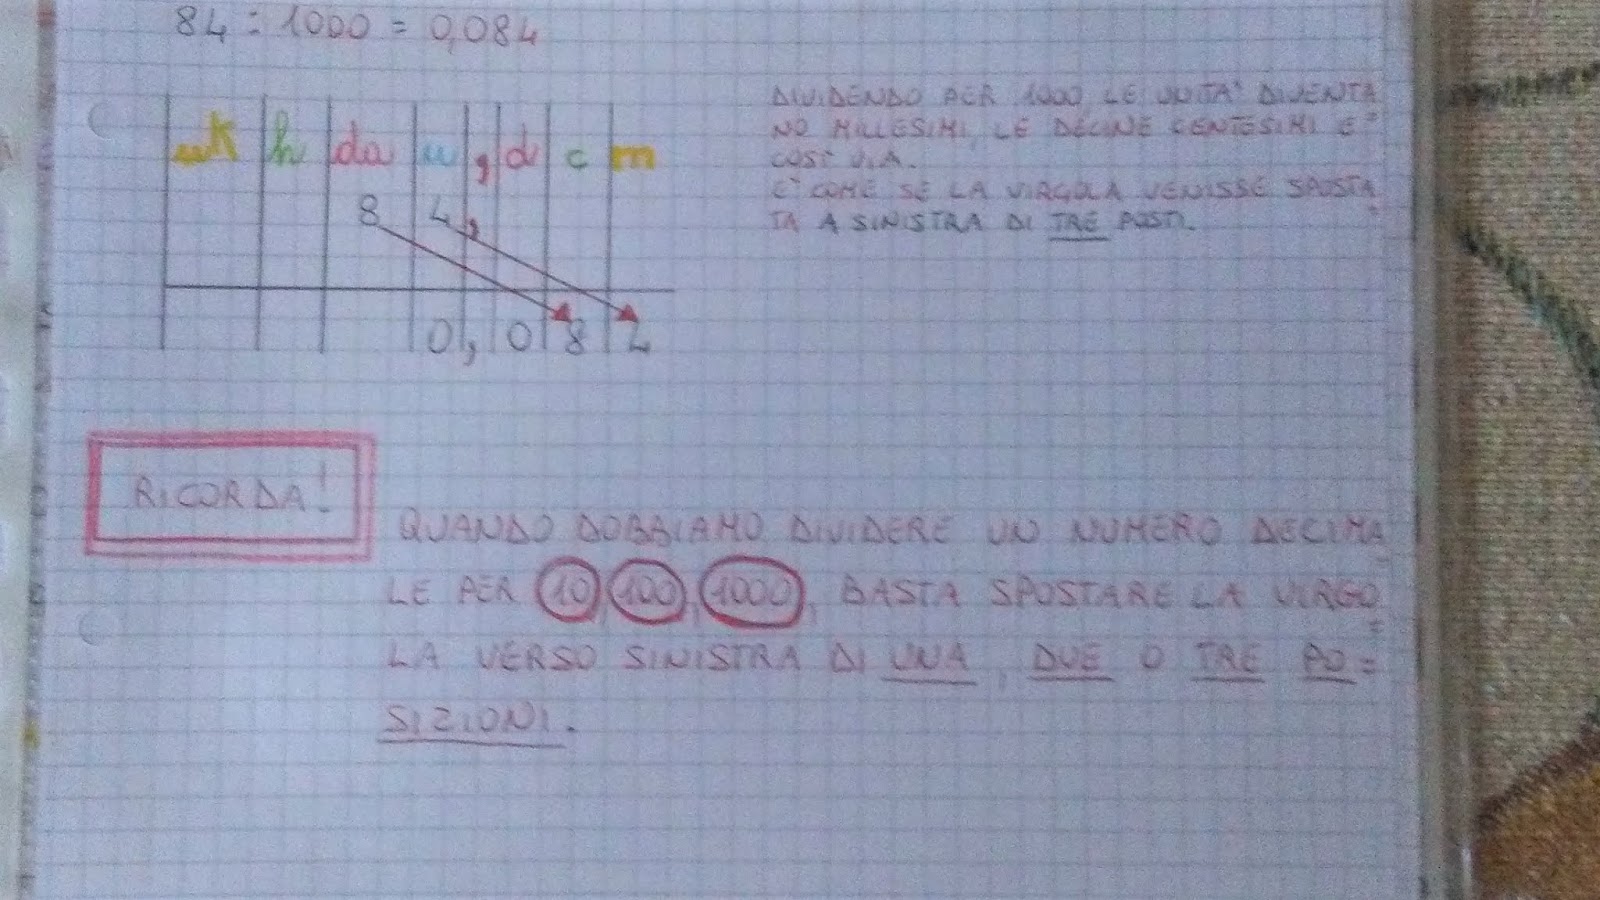 84 : 1000 = 0,084
uk h da u , d c m
8 4,
0, 0 8 4
DIVIDENDO PER 1000 LE UNITA' DIVENTA
NO MILLESIMI, LE DECINE CENTESIMI E
COSI' VIA.
E' COME SE LA VIRGOLA VENISSE SPOSTA=
TA A SINISTRA DI TRE POSTI.
RICORDA!
QUANDO DOBBIAMO DIVIDERE UN NUMERO DECIMA=
LE PER 10, 100, 1000, BASTA SPOSTARE LA VIRGO=
LA VERSO SINISTRA DI UNA, DUE O TRE PO=
SIZIONI.